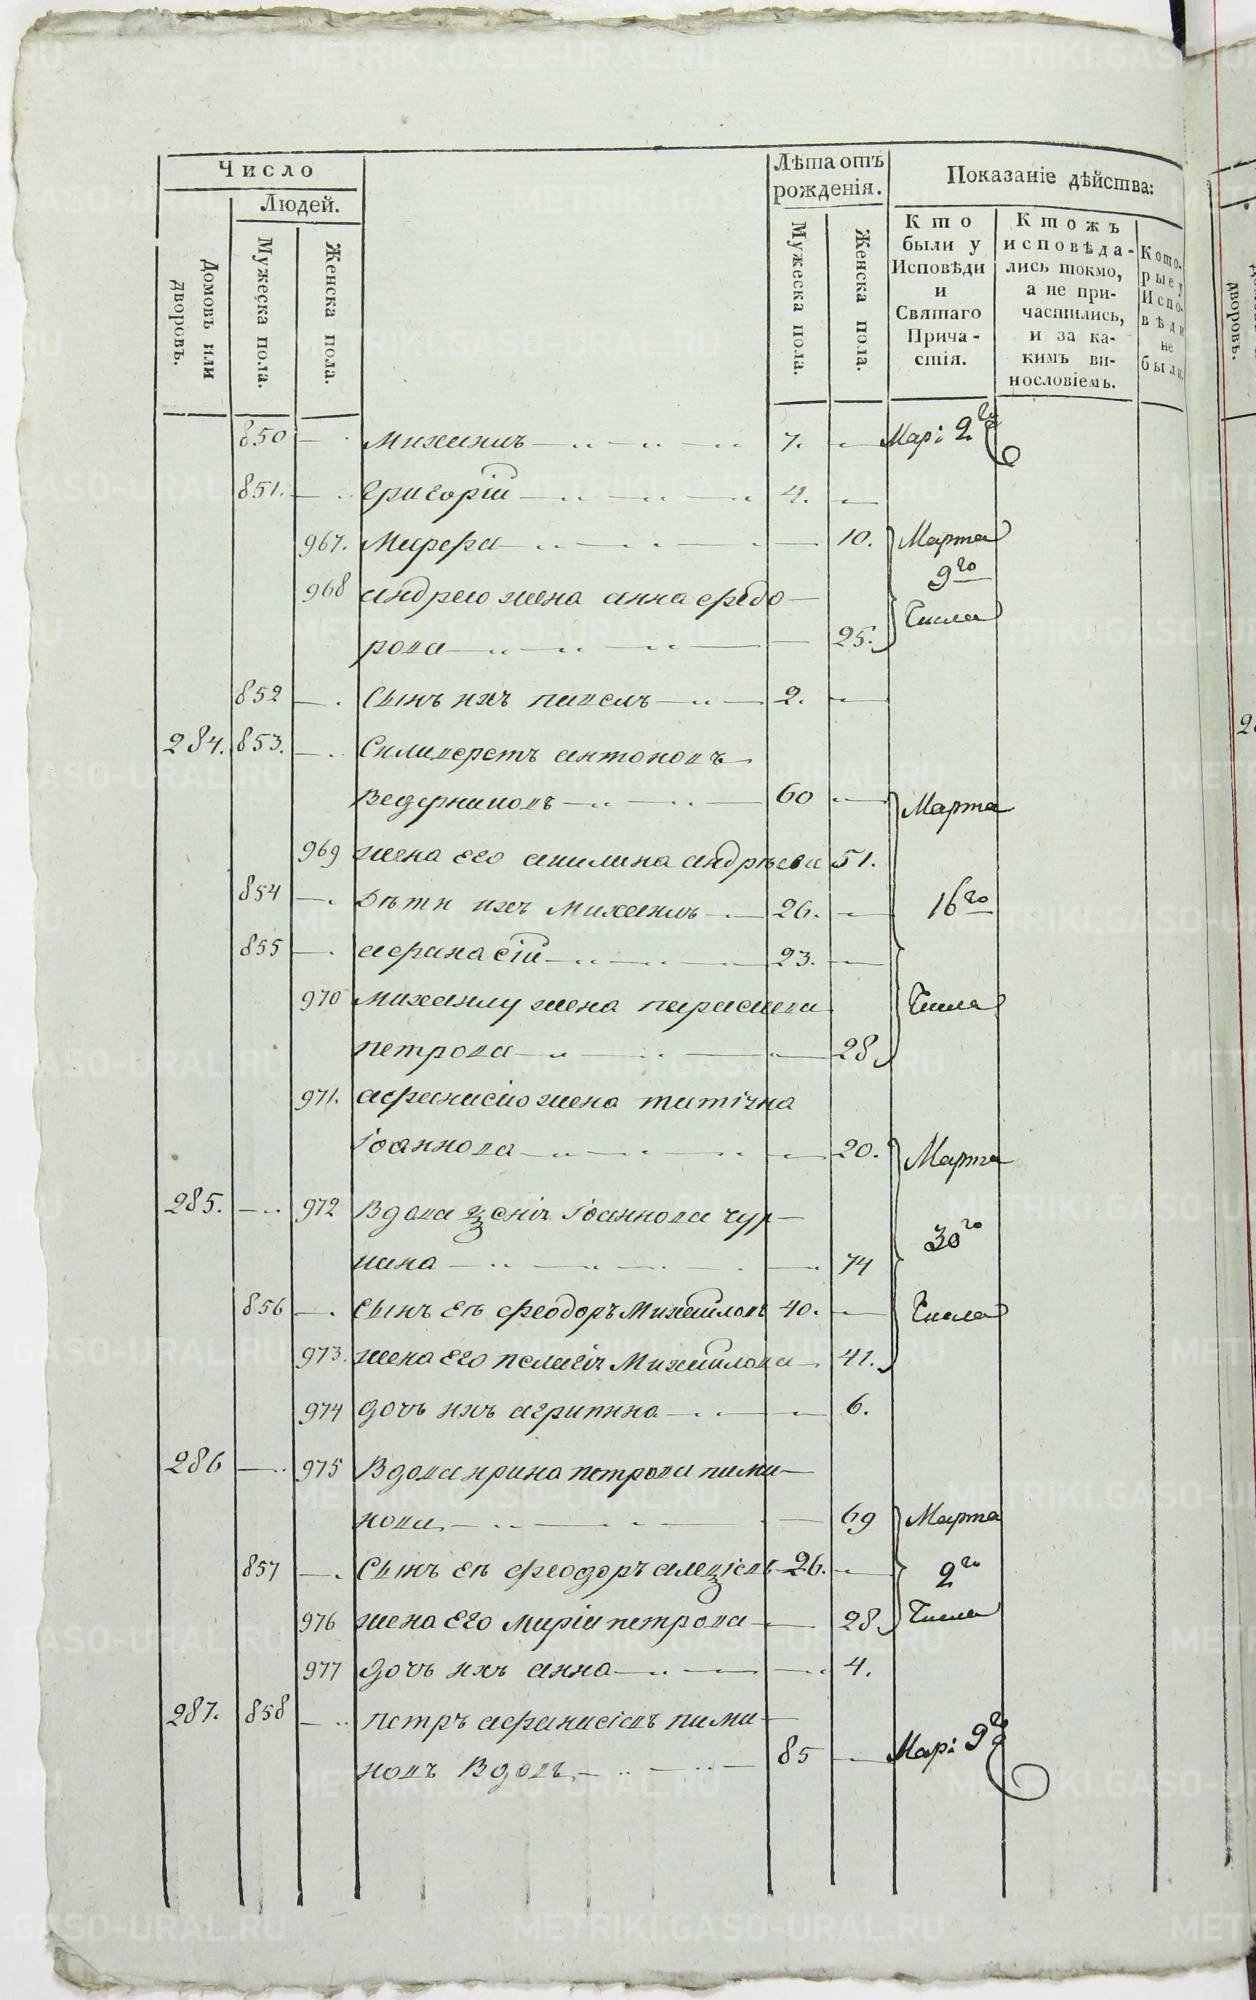 Число
Людей.
Домовъ или дворовъ.
Мужеска пола.
Женска пола.
Лѣта отъ рожденія.
Мужеска пола.
Женска пола.
Показаніе дѣйства:
Кто были у Исповѣди и Святаго Причастія.
Ктожъ исповѣдались токмо, а не причастились, и за какимъ винословіемъ.
Которые у Исповѣди не были.
850 — Михаилъ — 7. — Мар: 2го
851. — Григорій — 4. —
967. Марфа — 10. Марта
968 андрею жена анна федо— 9го
рова — 25. Числа
852 — сынъ ихъ павелъ — 2. —
284. 853. — Силивестъ антоновъ
Ведерниковъ — 60 — Марта
969 жена его акилина андрѣева 51.
854 — Дѣти ихъ Михаилъ — 26. — 16го
855 — афанасій — 23. —
970 Михаилу жена параскева Числа
петрова — 28
971. афанасію жена татіана
Іоаннова — 20. Марта
285. — 972 Вдова Іоаннова чур—
кина — 74 30го
856 — сынъ еѣ феодоръ Михайловъ 40. — Числа
973. жена его пелагія Михайлова — 41.
974 дочь ихъ агрипина — 6.
286 — 975 Вдова ирина петрова пими—
нова — 69 Марта
857 — Сынъ еѣ феодоръ алеѯіевъ 26. — 2го
976 жена его Марія петрова — 28 Числа
977 дочь ихъ анна — 4.
287. 858 — петръ афанасіевъ пими—
новъ Вдовъ — 85 — Мар: 9го
METRIKI.GASO-URAL.RU